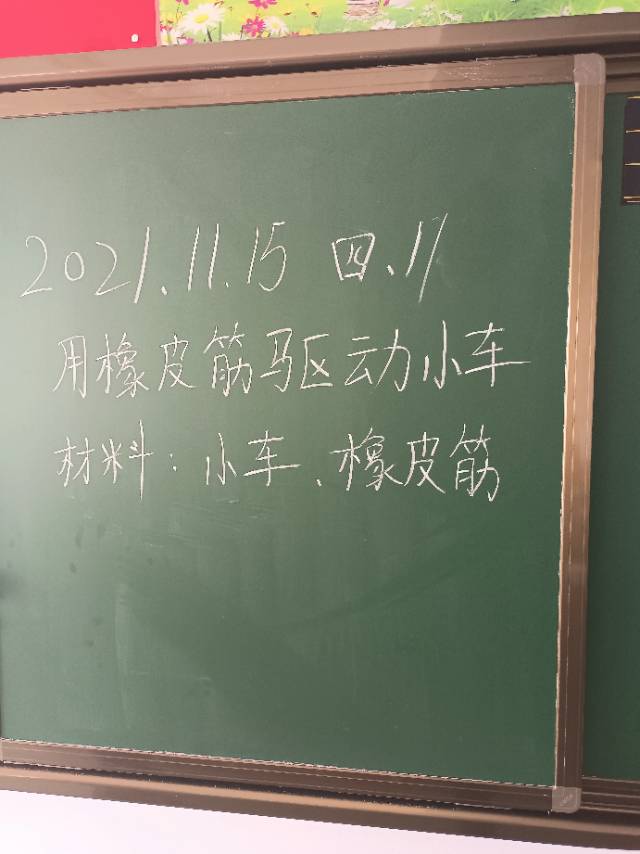 2021.11.15 四、11
用橡皮筋驱动小车
材料：小车、橡皮筋